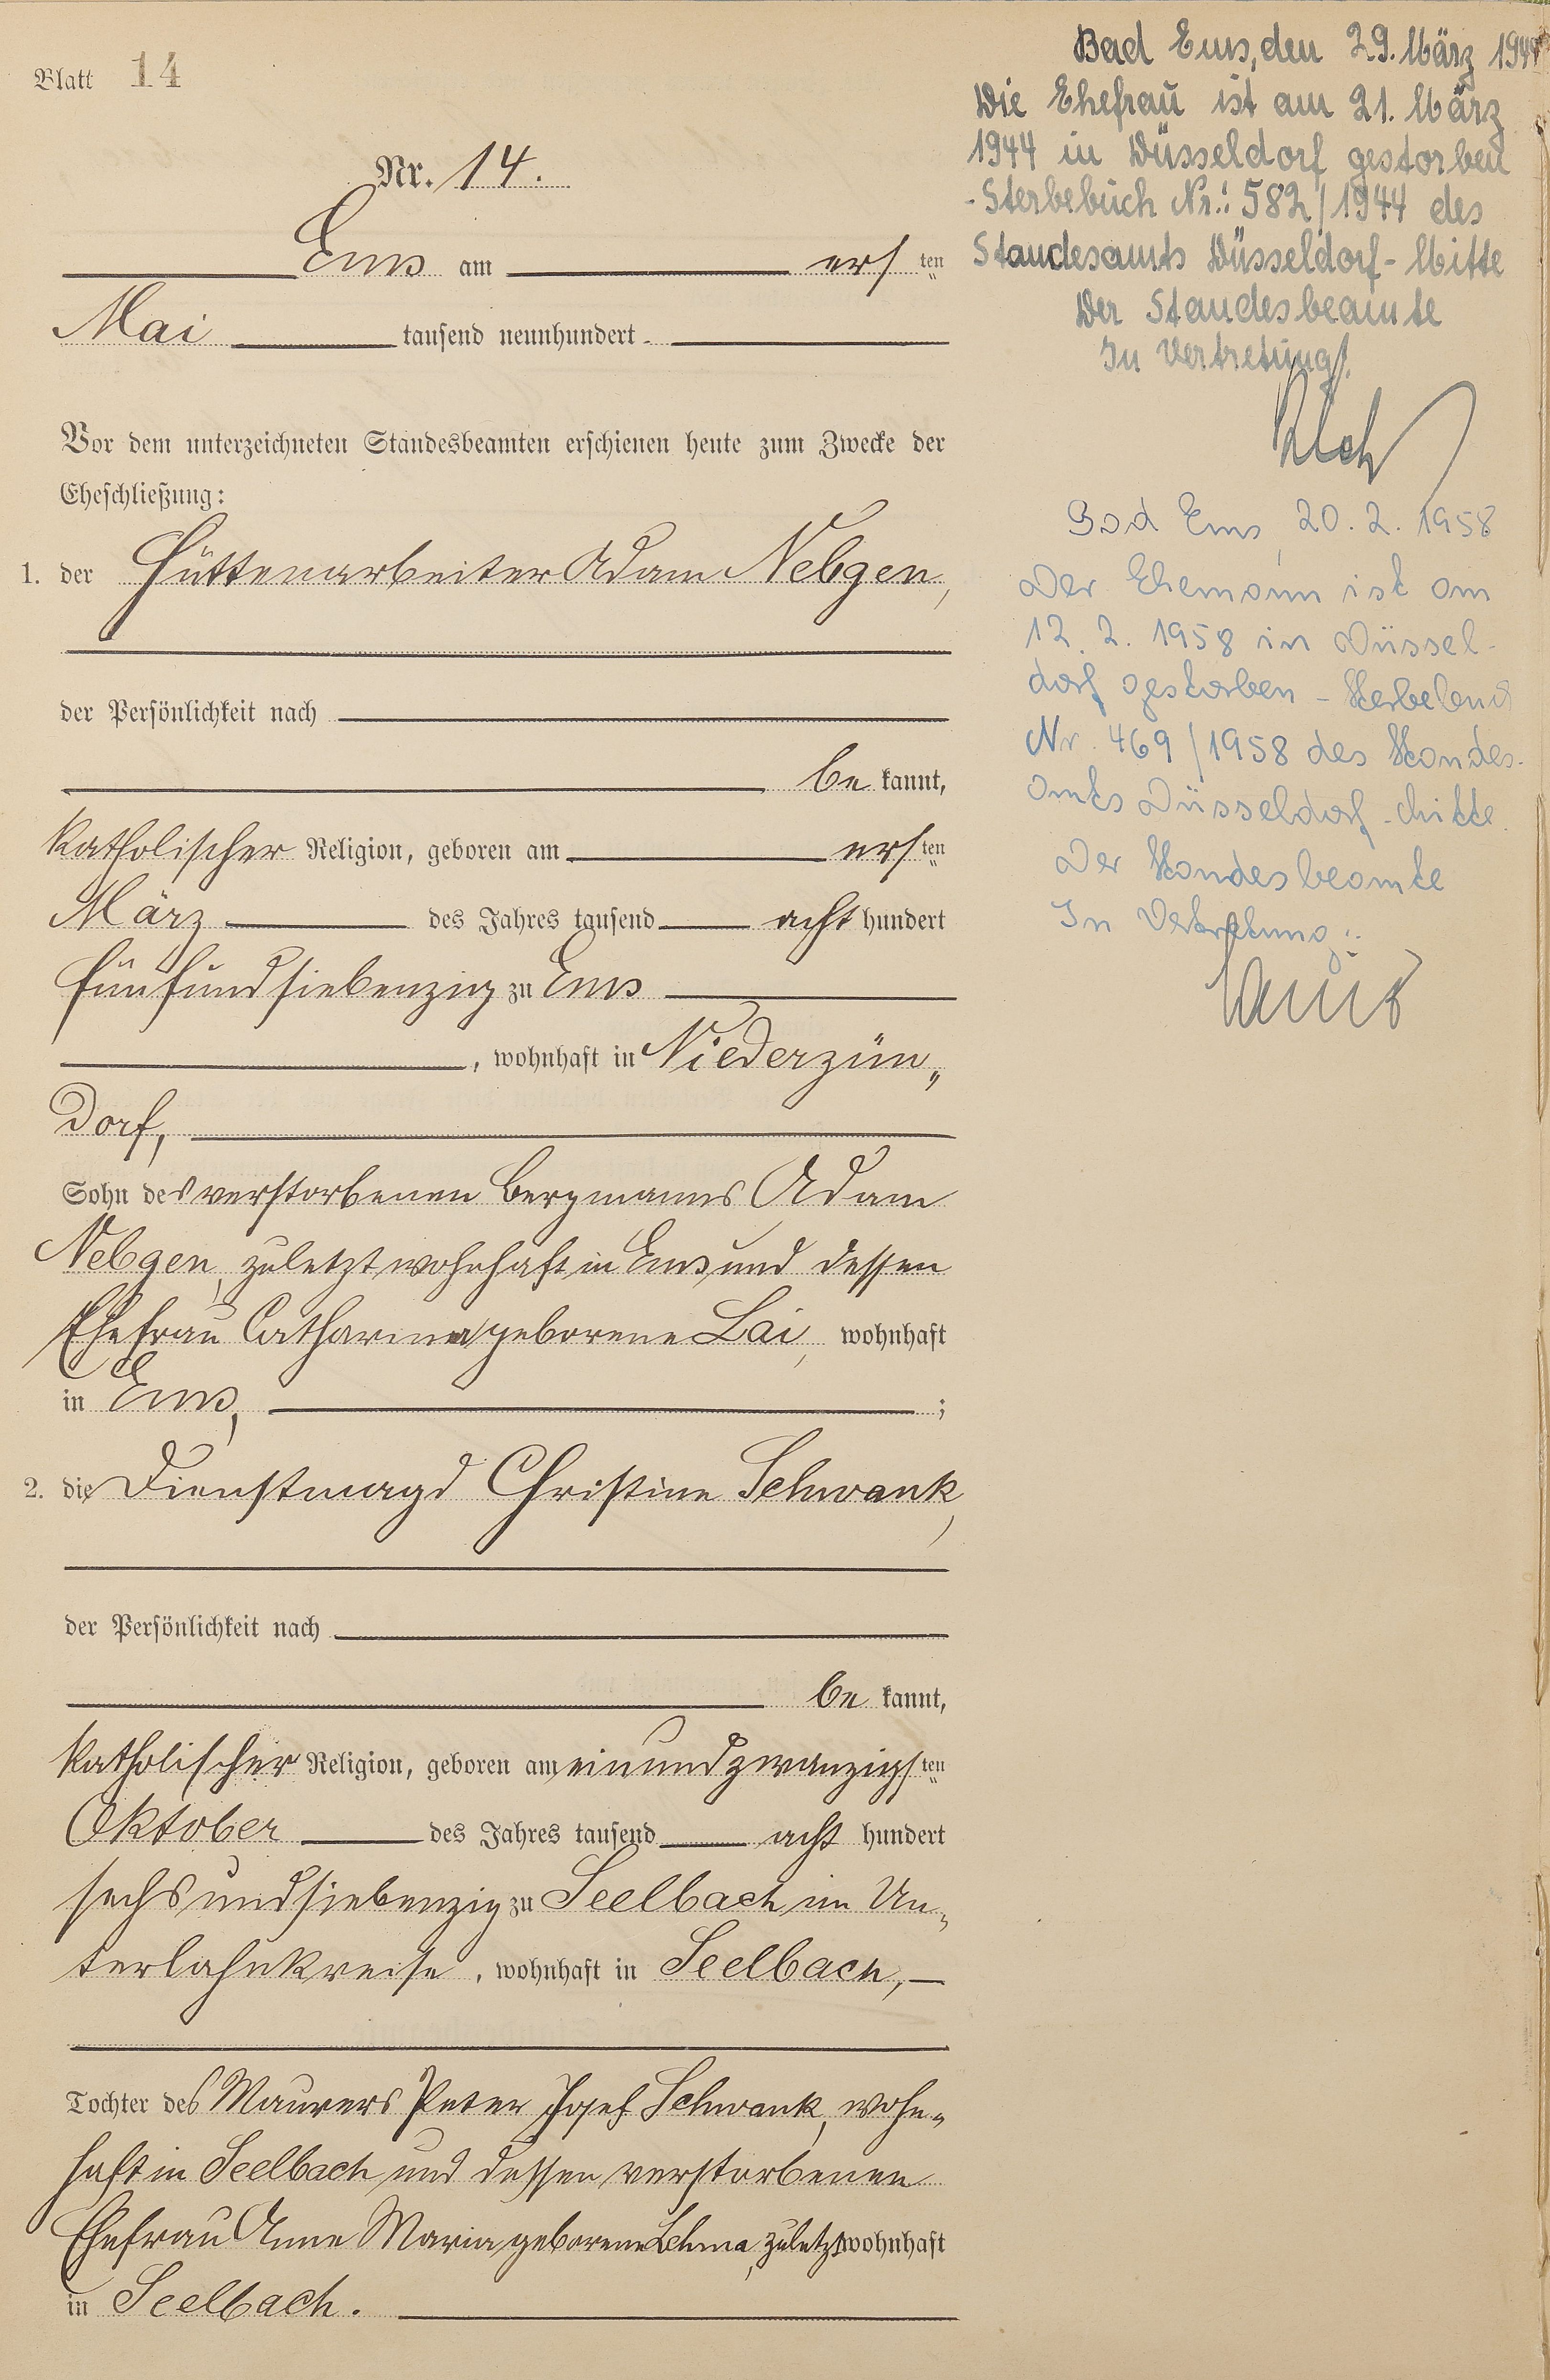 Blatt 14
Nr. 14.
Ems am ersten
Mai tausend neunhundert
Vor dem unterzeichneten Standesbeamten erschienen heute zum Zwecke der
Eheschließung:
1. der Hüttenarbeiter Adam Nebgen,
der Persönlichkeit nach
be kannt,
katholischer Religion, geboren am ersten
März des Jahres tausend acht hundert
fünfundsiebenzig zu Ems
, wohnhaft in Niederzün„
dorf,
Sohn des verstorbenen Bergmanns Adam
Nebgen, zuletzt wohnhaft in Ems und dessen
Ehefrau Catharina geborene Lai, wohnhaft
in Ems, ;
2. die Dienstmagd Christine Schwank,
der Persönlichkeit nach
be kannt,
katholischer Religion, geboren am einundzwanzigsten
Oktober des Jahres tausend acht hundert
sechsundsiebenzig zu Seelbach im Un„
terlahnkreise, wohnhaft in Seelbach,
Tochter des Maurers Peter Josef Schwank, wohn„
haft in Seelbach und dessen verstorbenen
Ehefrau Anne Maria geborene zuletzt wohnhaft
in Seelbach.
Bad Ems, den 29. März 1944
Die Ehefrau ist am 21. März
1944 in Düsseldorf gestorben
- Sterbebuch Nr.: 582/1944 des
Standesamts Düsseldorf-Mitte
Der Standesbeamte
In Vertretung:
Bad Ems, 20. 2. 1958
Der Ehemann ist am
12. 2. 1958 in Düssel-
dorf gestorben - Sterbebuch
Nr. 469/1958 des Standes-
amts Düsseldorf-Mitte.
Der Standesbeamte
In Vertretung: